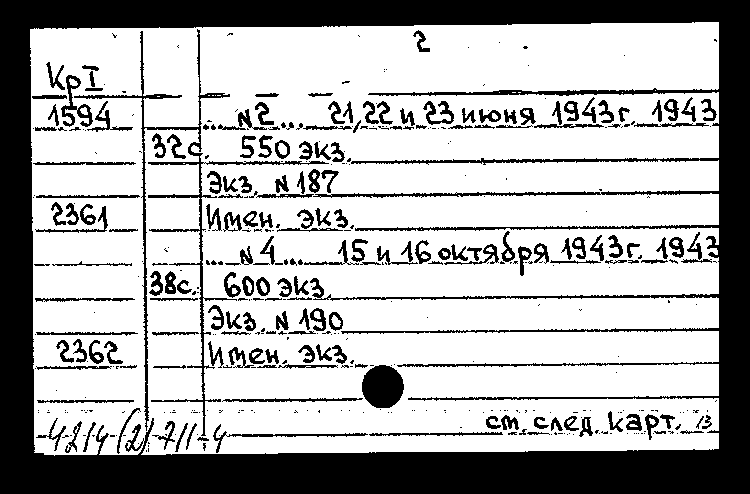 2
Кр I
1594 ... N2 ... 21,22 и 23 июня 1943г. 1943
32с. 550 экз.
Экз. N 187
2361 Имен. экз.
... N 4 ... 15 и 16 октября 1943г. 1943
38с. 600 экз.
Экз. N 190
2362 Имен. экз.
см. след. карт. 13
4214 (2) 711-4